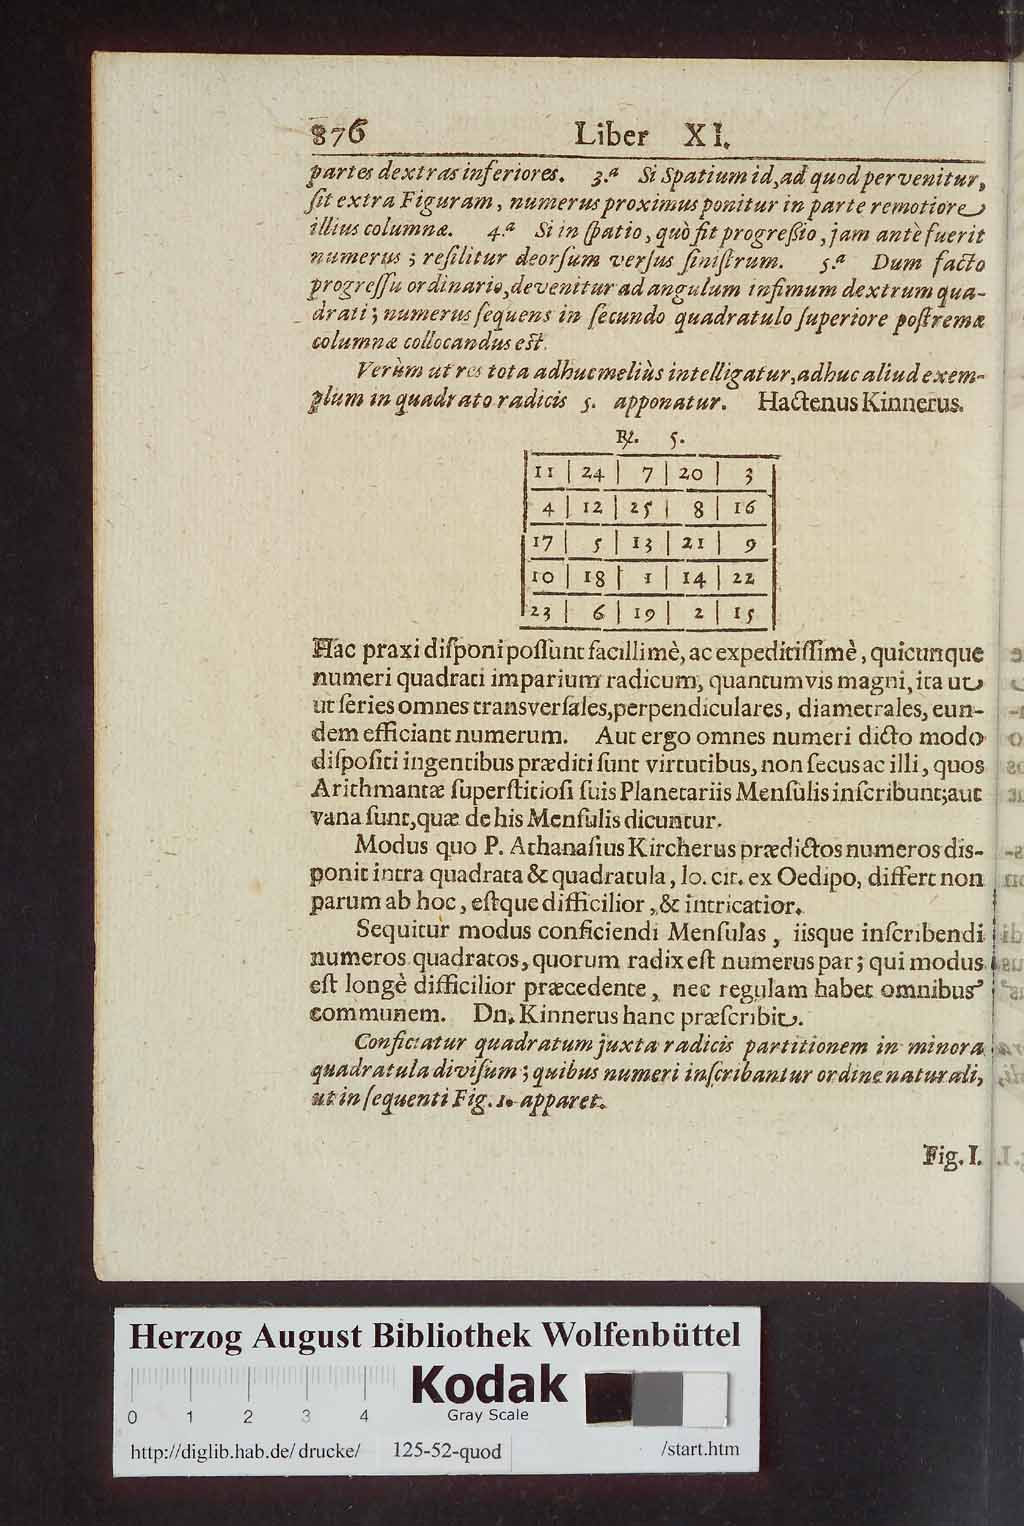 876 Liber XI.
partes dextras inferiores. 3.ª Si Spatium id, ad quod pervenitur,
ſit extra Figuram, numerus proximus ponitur in parte remotiore
illius columnæ. 4.ª Si in ſpatio, quò fit progreßio, jam antè fuerit
numerus; reſilitur deorſum verſus ſiniſtrum. 5.ª Dum facto
progreſſu ordinario, devenitur ad angulum infimum dextrum qua-
drati; numerus ſequens in ſecundo quadratulo ſuperiore poſtremæ
columnæ collocandus eſt.
Verùm ut res tota adhuc meliùs intelligatur, adhuc aliud exem-
plum in quadrato radicis 5. apponatur. Hactenus Kinnerus.
℞. 5.
11 | 24 | 7 | 20 | 3
4 | 12 | 25 | 8 | 16
17 | 5 | 13 | 21 | 9
10 | 18 | 1 | 14 | 22
23 | 6 | 19 | 2 | 15
Hac praxi diſponi poſſunt facillimè, ac expeditiſſimè, quicunque
numeri quadrati imparium radicum, quantumvis magni, ita ut
ut ſeries omnes transverſales, perpendiculares, diametrales, eun-
dem efficiant numerum. Aut ergo omnes numeri dicto modo
diſpoſiti ingentibus præditi ſunt virtutibus, non ſecus ac illi, quos
Arithmantæ ſuperſtitioſi ſuis Planetariis Menſulis inſcribunt; aut
vana ſunt, quæ de his Menſulis dicuntur.
Modus quo P. Athanaſius Kircherus prædictos numeros dis-
ponit intra quadrata & quadratula, lo. cit. ex Oedipo, differt non
parum ab hoc, eſtque difficilior, & intricatior.
Sequitur modus conficiendi Menſulas, iisque inſcribendi
numeros quadratos, quorum radix eſt numerus par; qui modus
eſt longè difficilior præcedente, nec regulam habet omnibus
communem. Dn. Kinnerus hanc præſcribit.
Conficiatur quadratum juxta radicis partitionem in minora
quadratula diviſum; quibus numeri inſcribantur ordine naturali,
ut in ſequenti Fig. 1. apparet.
Fig. I.
Herzog August Bibliothek Wolfenbüttel
Kodak
Gray Scale
0 1 2 3 4
http://diglib.hab.de/drucke/ 125-52-quod /start.htm